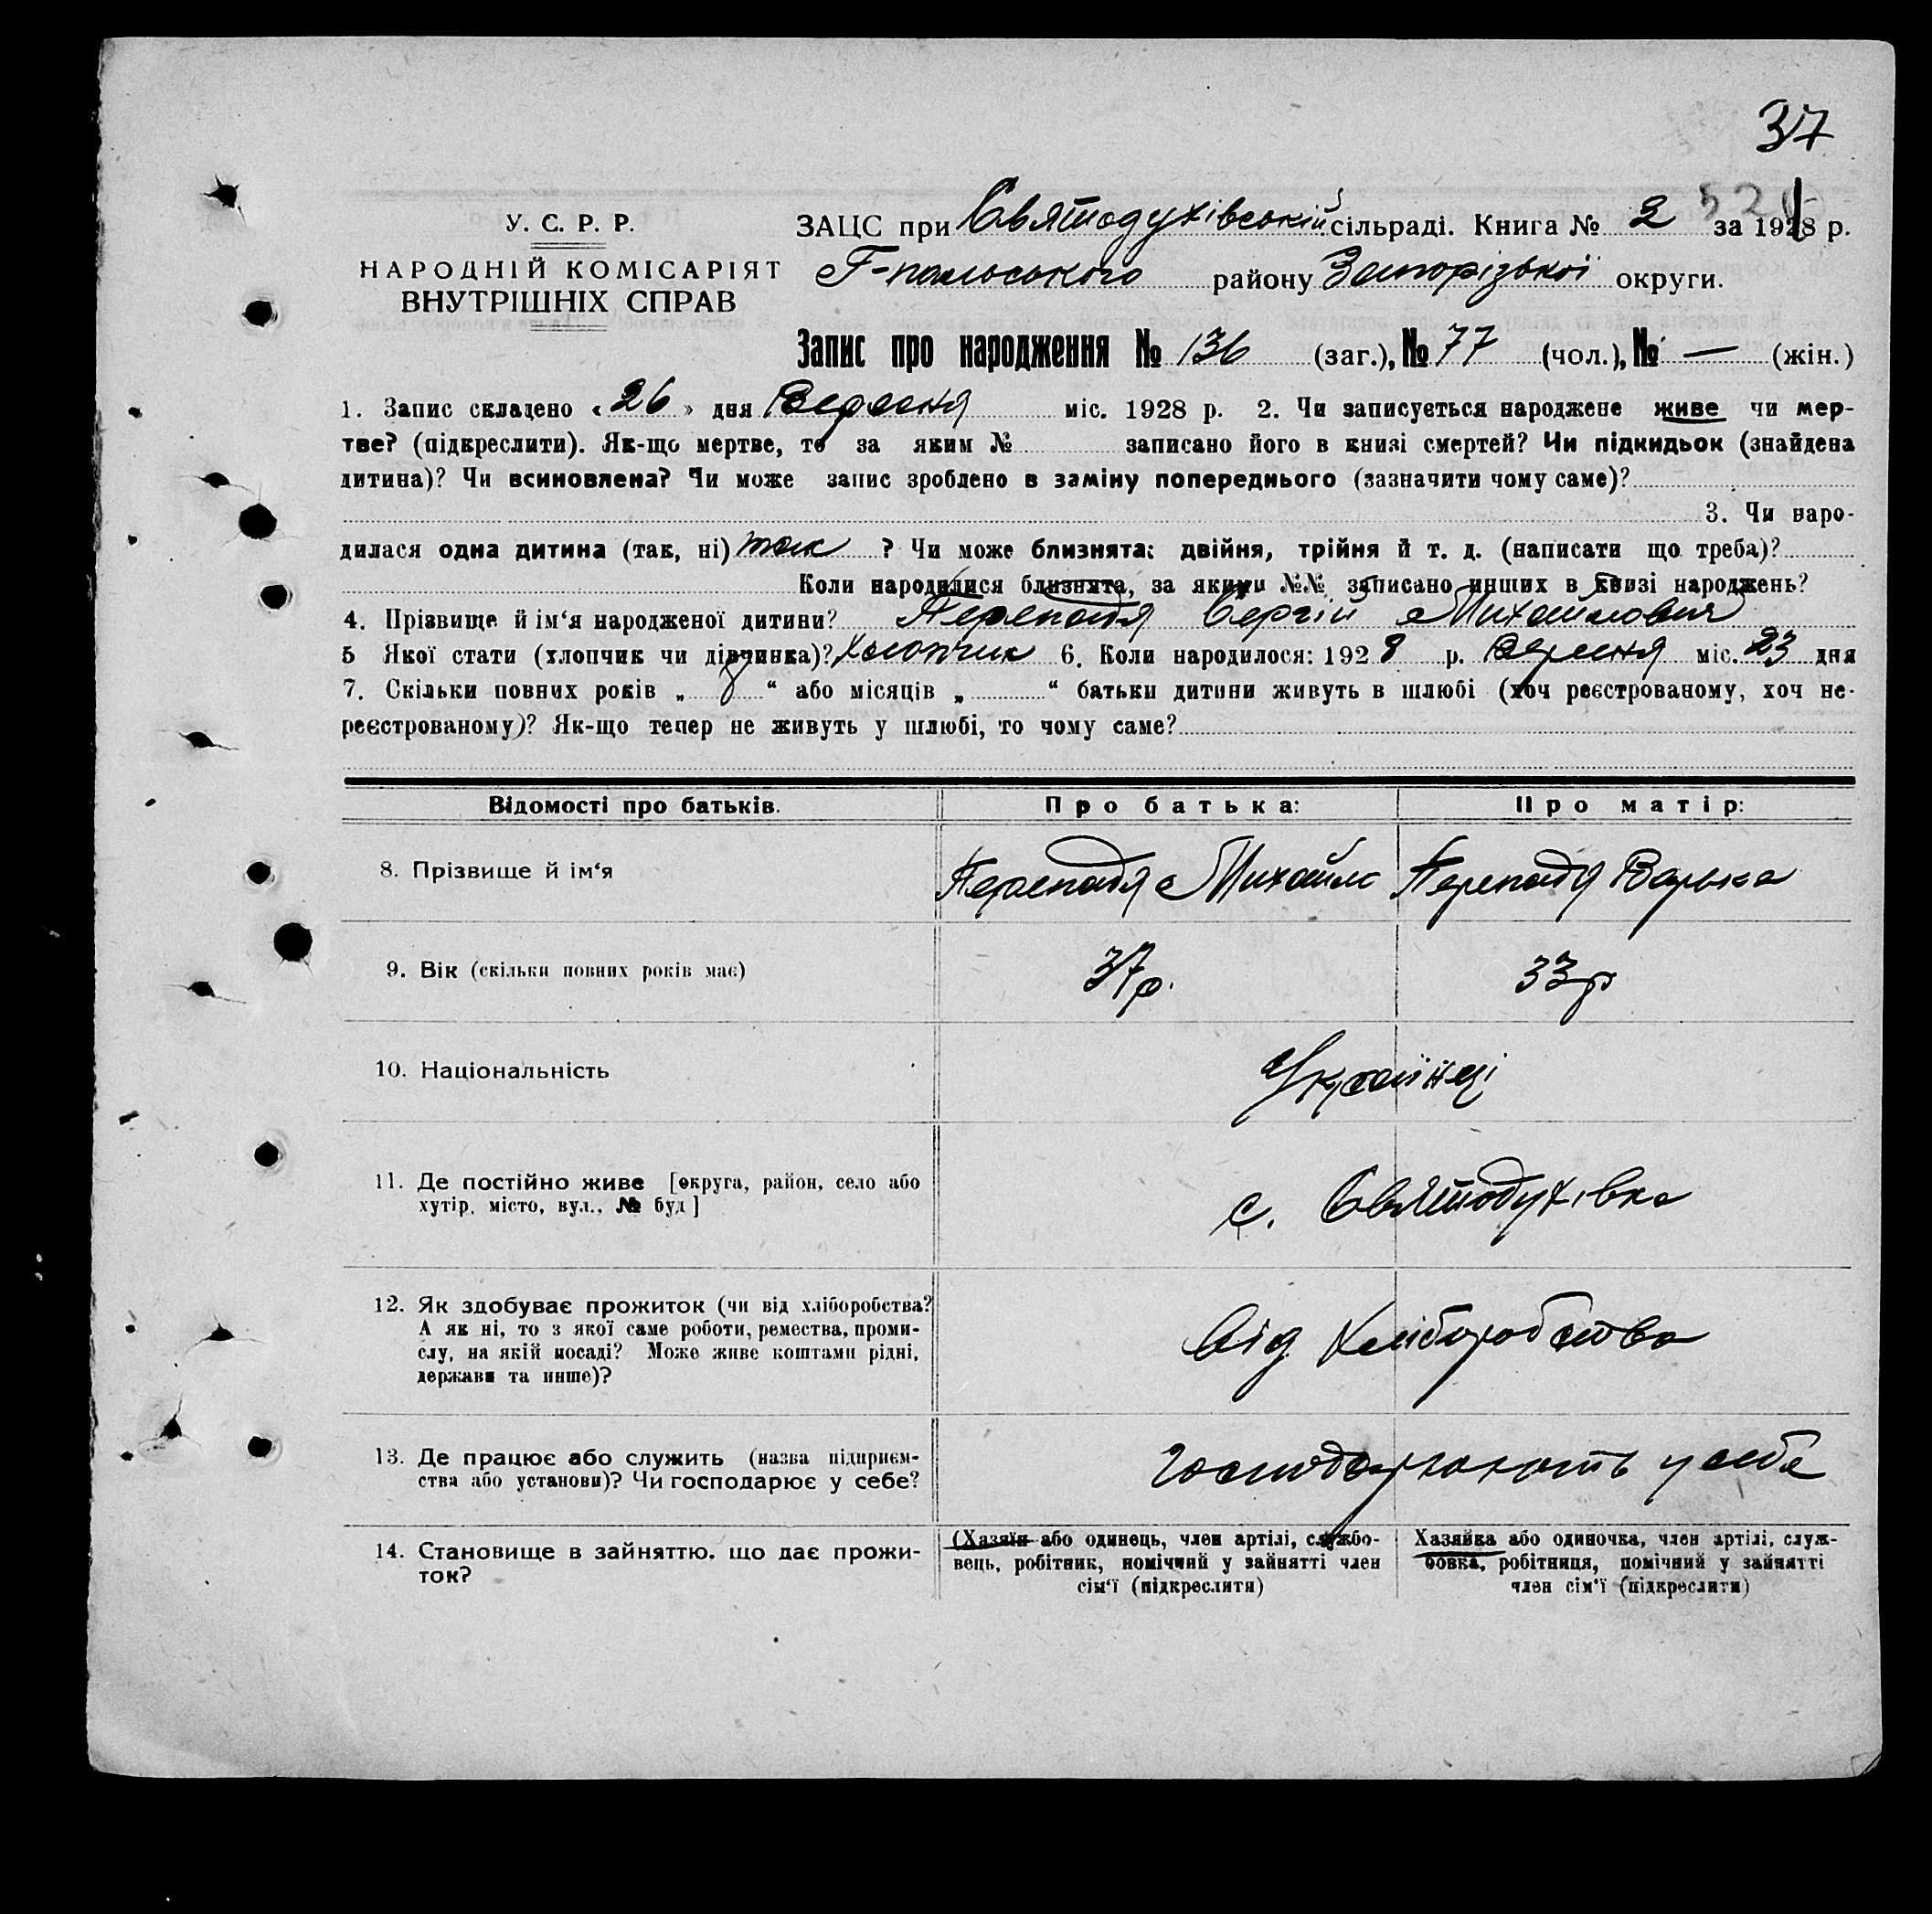 37
У. С. Р. Р.
НАРОДНІЙ КОМІСАРІЯТ
ВНУТРІШНІХ СПРАВ
ЗАЦС при Святодухівській сільраді. Книга № 2 за 1928 р.
Г-польського району Запорізької округи.
Запис про народження № 136 (заг.), № 77 (чол.), № — (жін.)
1. Запис складено « 26 » дня Вересня міс. 1928 р. 2. Чи записується народжене живе чи мер-
тве? (підкреслити). Як-що мертве, то за яким № записано його в книзі смертей? Чи підкидьок (знайдена
дитина)? Чи всиновлена? Чи може запис зроблено в заміну попереднього (зазначити чому саме)?
3. Чи наро-
дилася одна дитина (так, ні) так ? Чи може близнята: двійня, трійня й т. д. (написати що треба)?
Коли народилися близнята, за якими №№ записано инших в книзі народжень?
4. Прізвище й ім‘я народженої дитини? Перепадя Сергій Михайлович
5 Якої стати (хлопчик чи дівчинка)? Хлопчик 6. Коли народилося: 1928 р. Вересня міс. 23 дня
7. Скільки повних років „ “ або місяців „ “ батьки дитини живуть в шлюбі (хоч реєстрованому, хоч не-
реєстрованому)? Як-що тепер не живуть у шлюбі, то чому саме?
Відомості про батьків. Про батька: Про матір:
8. Прізвище й ім‘я Перепадя Михайло Перепадя Варька
9. Вік (скільки повних років має) 37р. 33р
10. Національність Українці
11. Де постійно живе [округа, район, село або
хутір, місто, вул., № буд]
с. Святодухівка
12. Як здобуває прожиток (чи від хліборобства?
А як ні, то з якої саме роботи, ремества, проми-
слу, на якій посаді? Може живе коштами рідні,
держави та инше)?
Від Хліборобства
13. Де працює або служить (назва підприєм-
ства або установи)? Чи господарює у себе?
Господарюють у себе
14. Становище в зайняттю, що дає прожи-
ток?
(Хазяїн або одинець, член артілі, службо-
вець, робітник, помічний у зайнятті член
сім‘ї (підкреслити)
Хазяйка або одиночка, член артілі, служ-
бовка, робітниця, помічний у зайнятті
член сім‘ї (підкреслити)